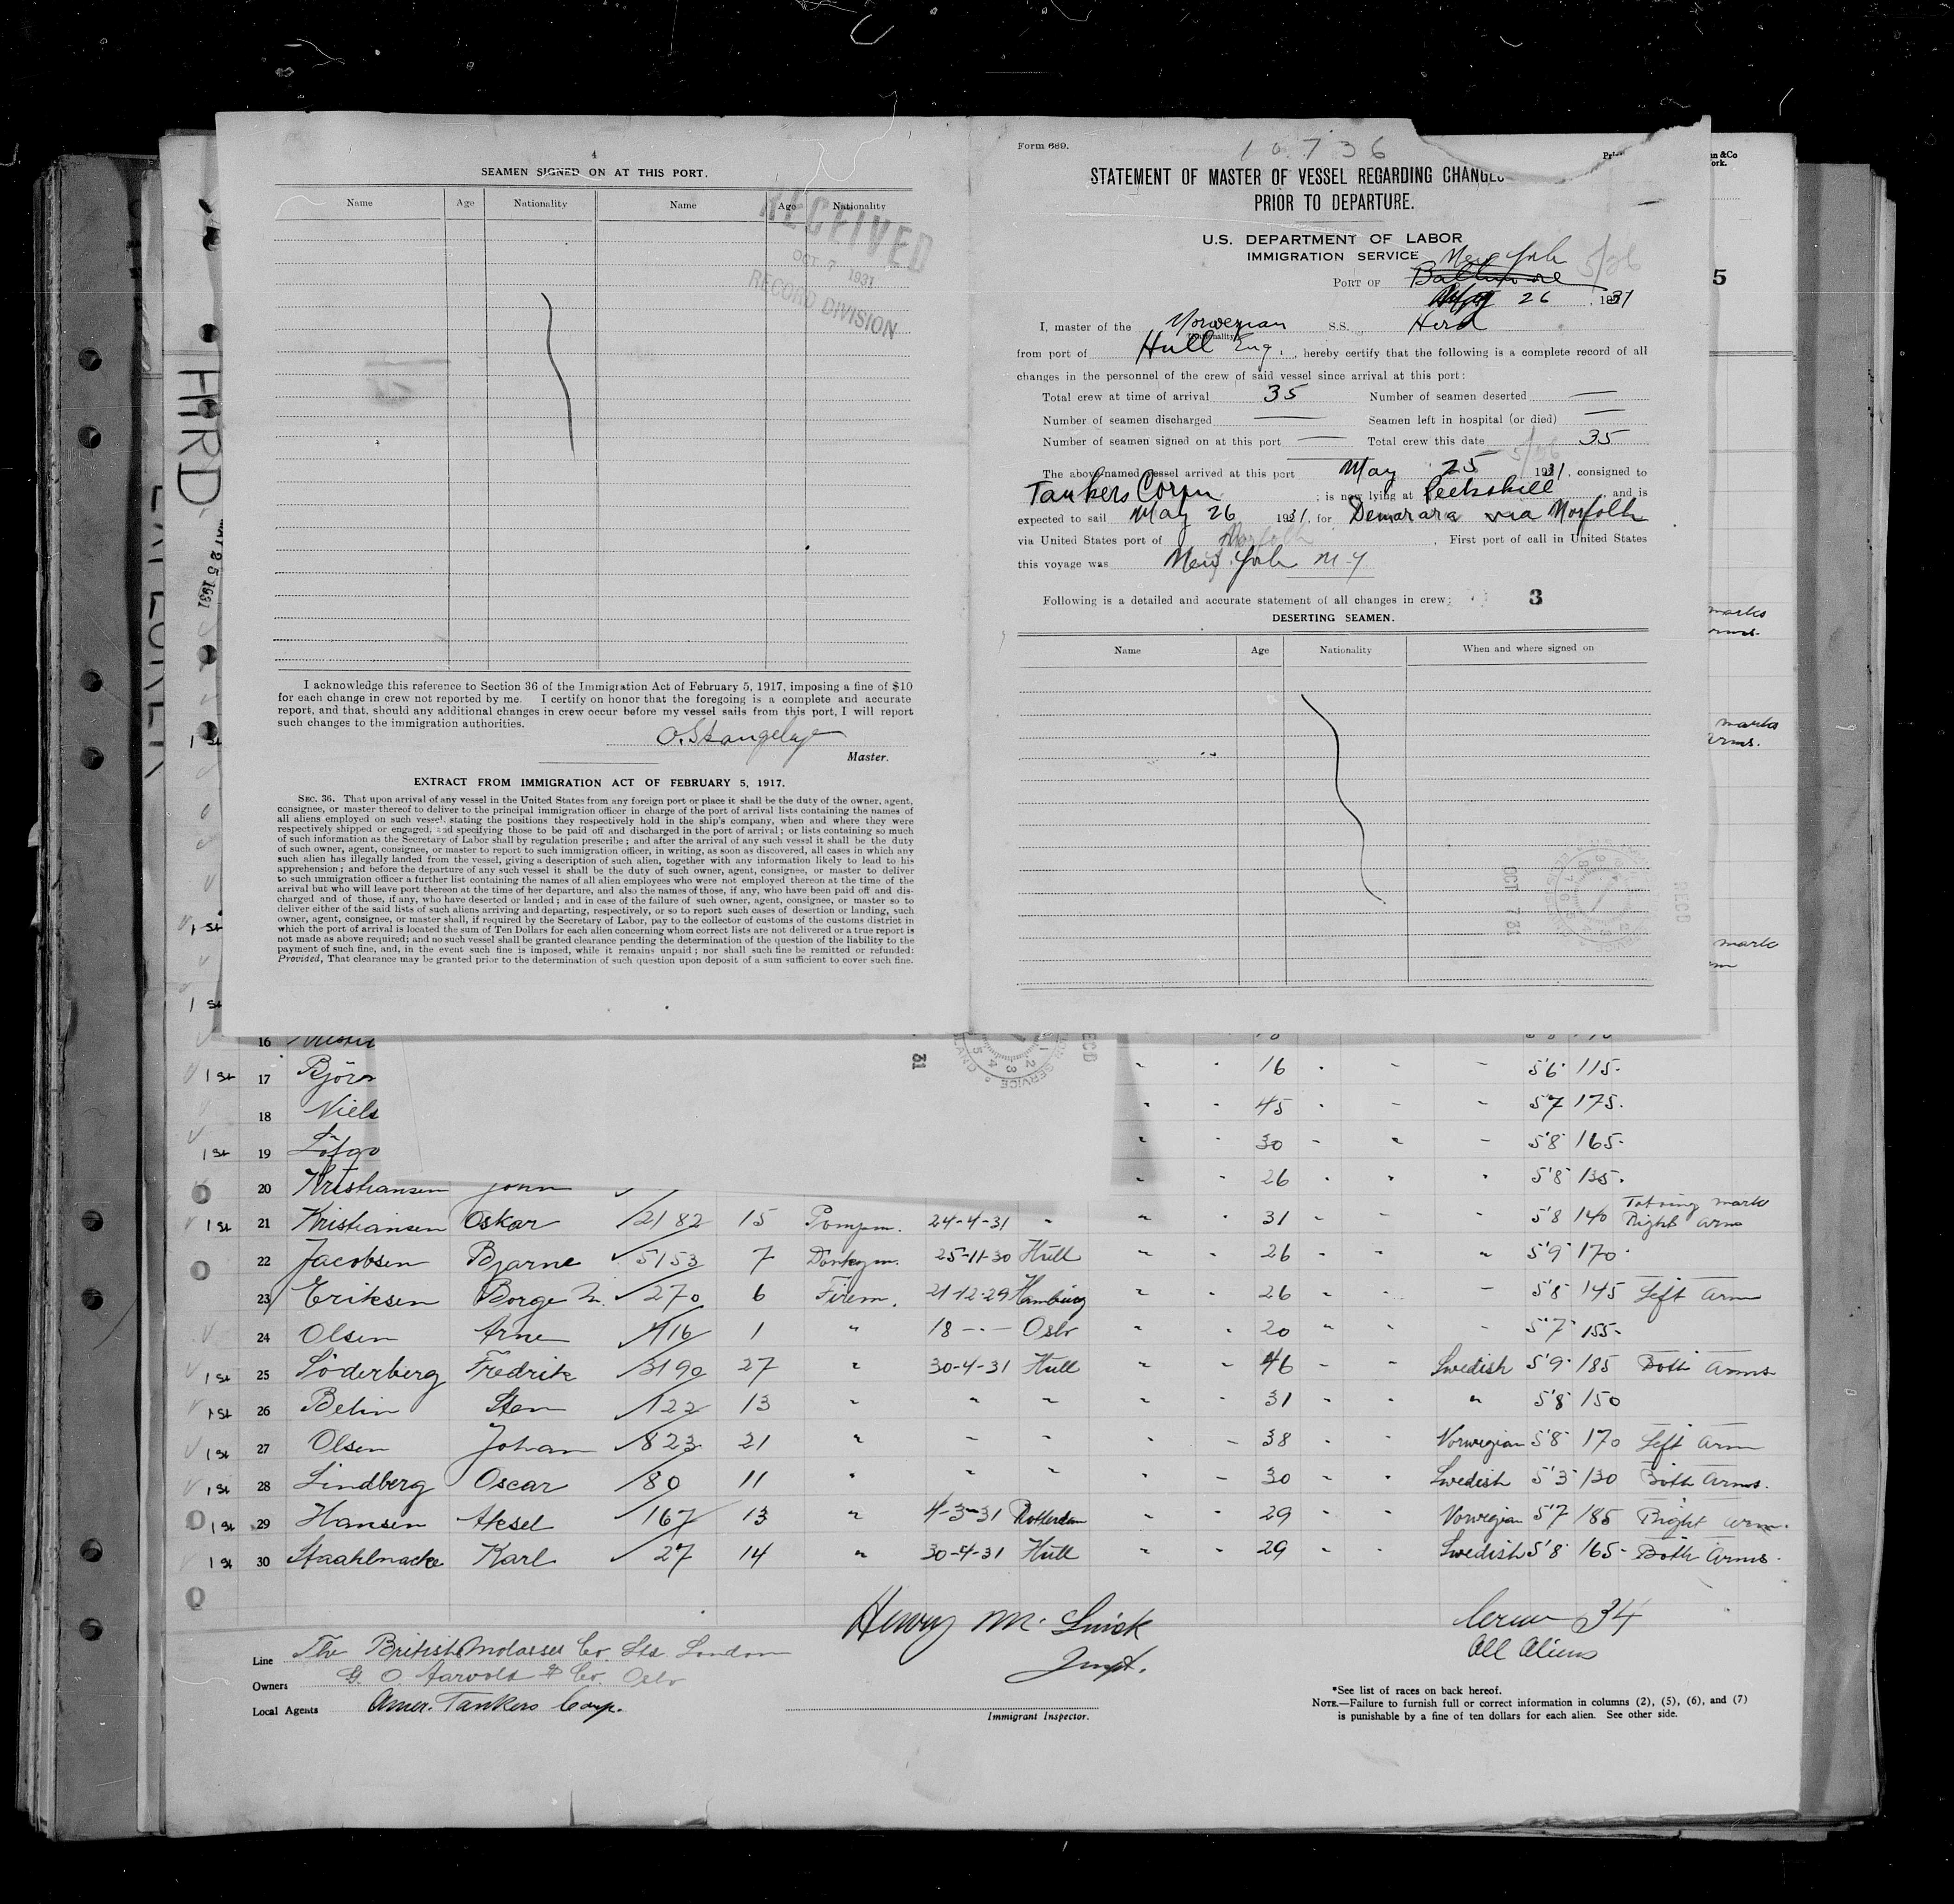 4
SEAMEN SIGNED ON AT THIS PORT.
Name Age Nationality Name Age Nationality
RECEIVED
OCT 7 1931
RECORD DIVISION
I acknowledge this reference to Section 36 of the Immigration Act of February 5, 1917, imposing a fine of $10
for each change in crew not reported by me. I certify on honor that the foregoing is a complete and accurate
report, and that, should any additional changes in crew occur before my vessel sails from this port, I will report
such changes to the immigration authorities.
Master.
EXTRACT FROM IMMIGRATION ACT OF FEBRUARY 5, 1917.
SEC. 36. That upon arrival of any vessel in the United States from any foreign port or place it shall be the duty of the owner, agent,
consignee, or master thereof to deliver to the principal immigration officer in charge of the port of arrival lists containing the names of
all aliens employed on such vessel, stating the positions they respectively hold in the ship's company, when and where they were
respectively shipped or engaged, and specifying those to be paid off and discharged in the port of arrival; or lists containing so much
of such information as the Secretary of Labor shall by regulation prescribe; and after the arrival of any such vessel it shall be the duty
of such owner, agent, consignee, or master to report to such immigration officer, in writing, as soon as discovered, all cases in which any
such alien has illegally landed from the vessel, giving a description of such alien, together with any information likely to lead to his
apprehension; and before the departure of any such vessel it shall be the duty of such owner, agent, consignee, or master to deliver
to such immigration officer a further list containing the names of all alien employees who were not employed thereon at the time of the
arrival but who will leave port thereon at the time of her departure, and also the names of those, if any, who have been paid off and dis-
charged and of those, if any, who have deserted or landed; and in case of the failure of such owner, agent, consignee, or master so to
deliver either of the said lists of such aliens arriving and departing, respectively, or so to report such cases of desertion or landing, such
owner, agent, consignee, or master shall, if required by the Secretary of Labor, pay to the collector of customs of the customs district in
which the port of arrival is located the sum of Ten Dollars for each alien concerning whom correct lists are not delivered or a true report is
not made as above required; and no such vessel shall be granted clearance pending the determination of the question of the liability to the
payment of such fine, and, in the event such fine is imposed, while it remains unpaid; nor shall such fine be remitted or refunded:
Provided, That clearance may be granted prior to the determination of such question upon deposit of a sum sufficient to cover such fine.
Form 689.
10736
STATEMENT OF MASTER OF VESSEL REGARDING CHANGES
PRIOR TO DEPARTURE.
U.S. DEPARTMENT OF LABOR
IMMIGRATION SERVICE
New York 5/26
PORT OF Baltimore
May 26, 1931
I, master of the Norwegian S.S. Hird
(Nationality)
from port of Hull Eng., hereby certify that the following is a complete record of all
changes in the personnel of the crew of said vessel since arrival at this port:
Total crew at time of arrival 35 Number of seamen deserted —
Number of seamen discharged — Seamen left in hospital (or died) —
Number of seamen signed on at this port — Total crew this date 35
5/26
The above-named vessel arrived at this port May 25 1931, consigned to
Tankers Corpn; is now lying at Peekskill, and is
expected to sail May 26 1931, for Demarara via Norfolk
via United States port of Norfolk. First port of call in United States
this voyage was New York N-Y
Following is a detailed and accurate statement of all changes in crew: 3
DESERTING SEAMEN.
Name Age Nationality When and where signed on
OCT 7 31
RECD
HIRD.
MAY 25 1931
5
marks
arms.
marks
arms.
mark
16
1 St 17 Björn 16 5'6 115
18 Niels 45 5'7 175
1 St 19 30 5'8 165
20 Kristiansen John 26 5'8 135
1 St 21 Kristiansen Oskar 2182 15 Pompm. 24-4-31 " " " 31 " " " 5'8 140 Tatoing mark Right arm
22 Jacobsen Bjarne 5153 7 Donkeym. 25-11-30 Hull " " 26 " " " 5'9 170
23 Eriksen Borge M. 270 6 Firem. 21-12-29 Hamburg " " 26 " " " 5'8 145 Left arm
24 Olsen Arne 416 1 " 18 - - - Oslo " " 20 " " " 5'7 155
1 St 25 Söderberg Fredrik 3190 27 " 30-4-31 Hull " " 46 " " Swedish 5'9 185 Both arms
1 St 26 Belin Sten 122 13 " " " " " 31 " " " 5'8 150
1 St 27 Olsen Johan 823 21 " " " " " 38 " " Norwegian 5'8 170 Left arm
1 St 28 Lindberg Oscar 80 11 " " " " " 30 " " Swedish 5'3 130 Both arms.
1 St 29 Hansen Aksel 167 13 " 4-3-31 Rotterdam " " 29 " " Norwegian 5'7 185 Right arm.
1 St 30 Staahlnacke Karl 27 14 " 30-4-31 Hull " " 29 " " Swedish 5'8 165 Both arms.
Henry Mc
Inspt.
Crew 34
All Aliens
Line The British Molasses Co. Ltd. London
Owners G. O. Aarvold & Co. Oslo
Local Agents Amer. Tankers Corp.
Immigrant Inspector.
*See list of races on back hereof.
NOTE.—Failure to furnish full or correct information in columns (2), (5), (6), and (7)
is punishable by a fine of ten dollars for each alien. See other side.